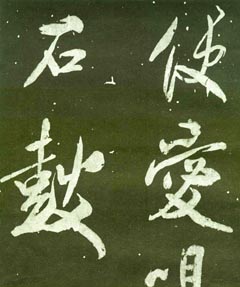 使愛
石鼓